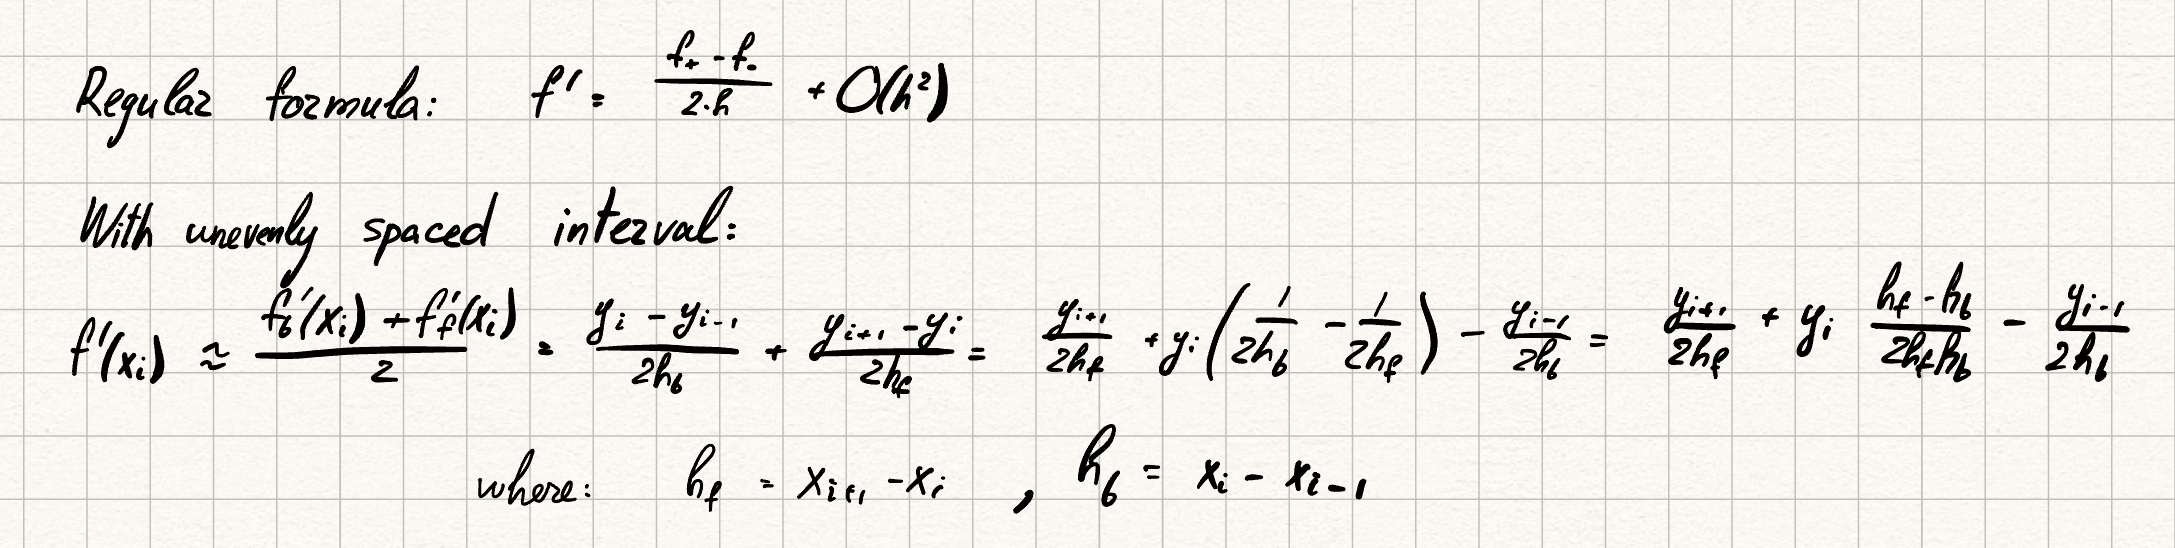 Regular formula: f' = (f₊ - f₋)/(2·h) + O(h²)
With unevenly spaced interval:
f'(xᵢ) ≈ (f'_b(xᵢ) + f'_f(xᵢ))/2 = (yᵢ - yᵢ₋₁)/(2h_b) + (yᵢ₊₁ - yᵢ)/(2h_f) = yᵢ₊₁/(2h_f) + yᵢ(1/(2h_b) - 1/(2h_f)) - yᵢ₋₁/(2h_b) = yᵢ₊₁/(2h_f) + yᵢ (h_f - h_b)/(2h_f h_b) - yᵢ₋₁/(2h_b)
where: h_f = xᵢ₊₁ - xᵢ , h_b = xᵢ - xᵢ₋₁